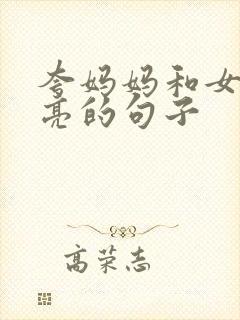 夸妈妈和女
亮的句子
高荣志